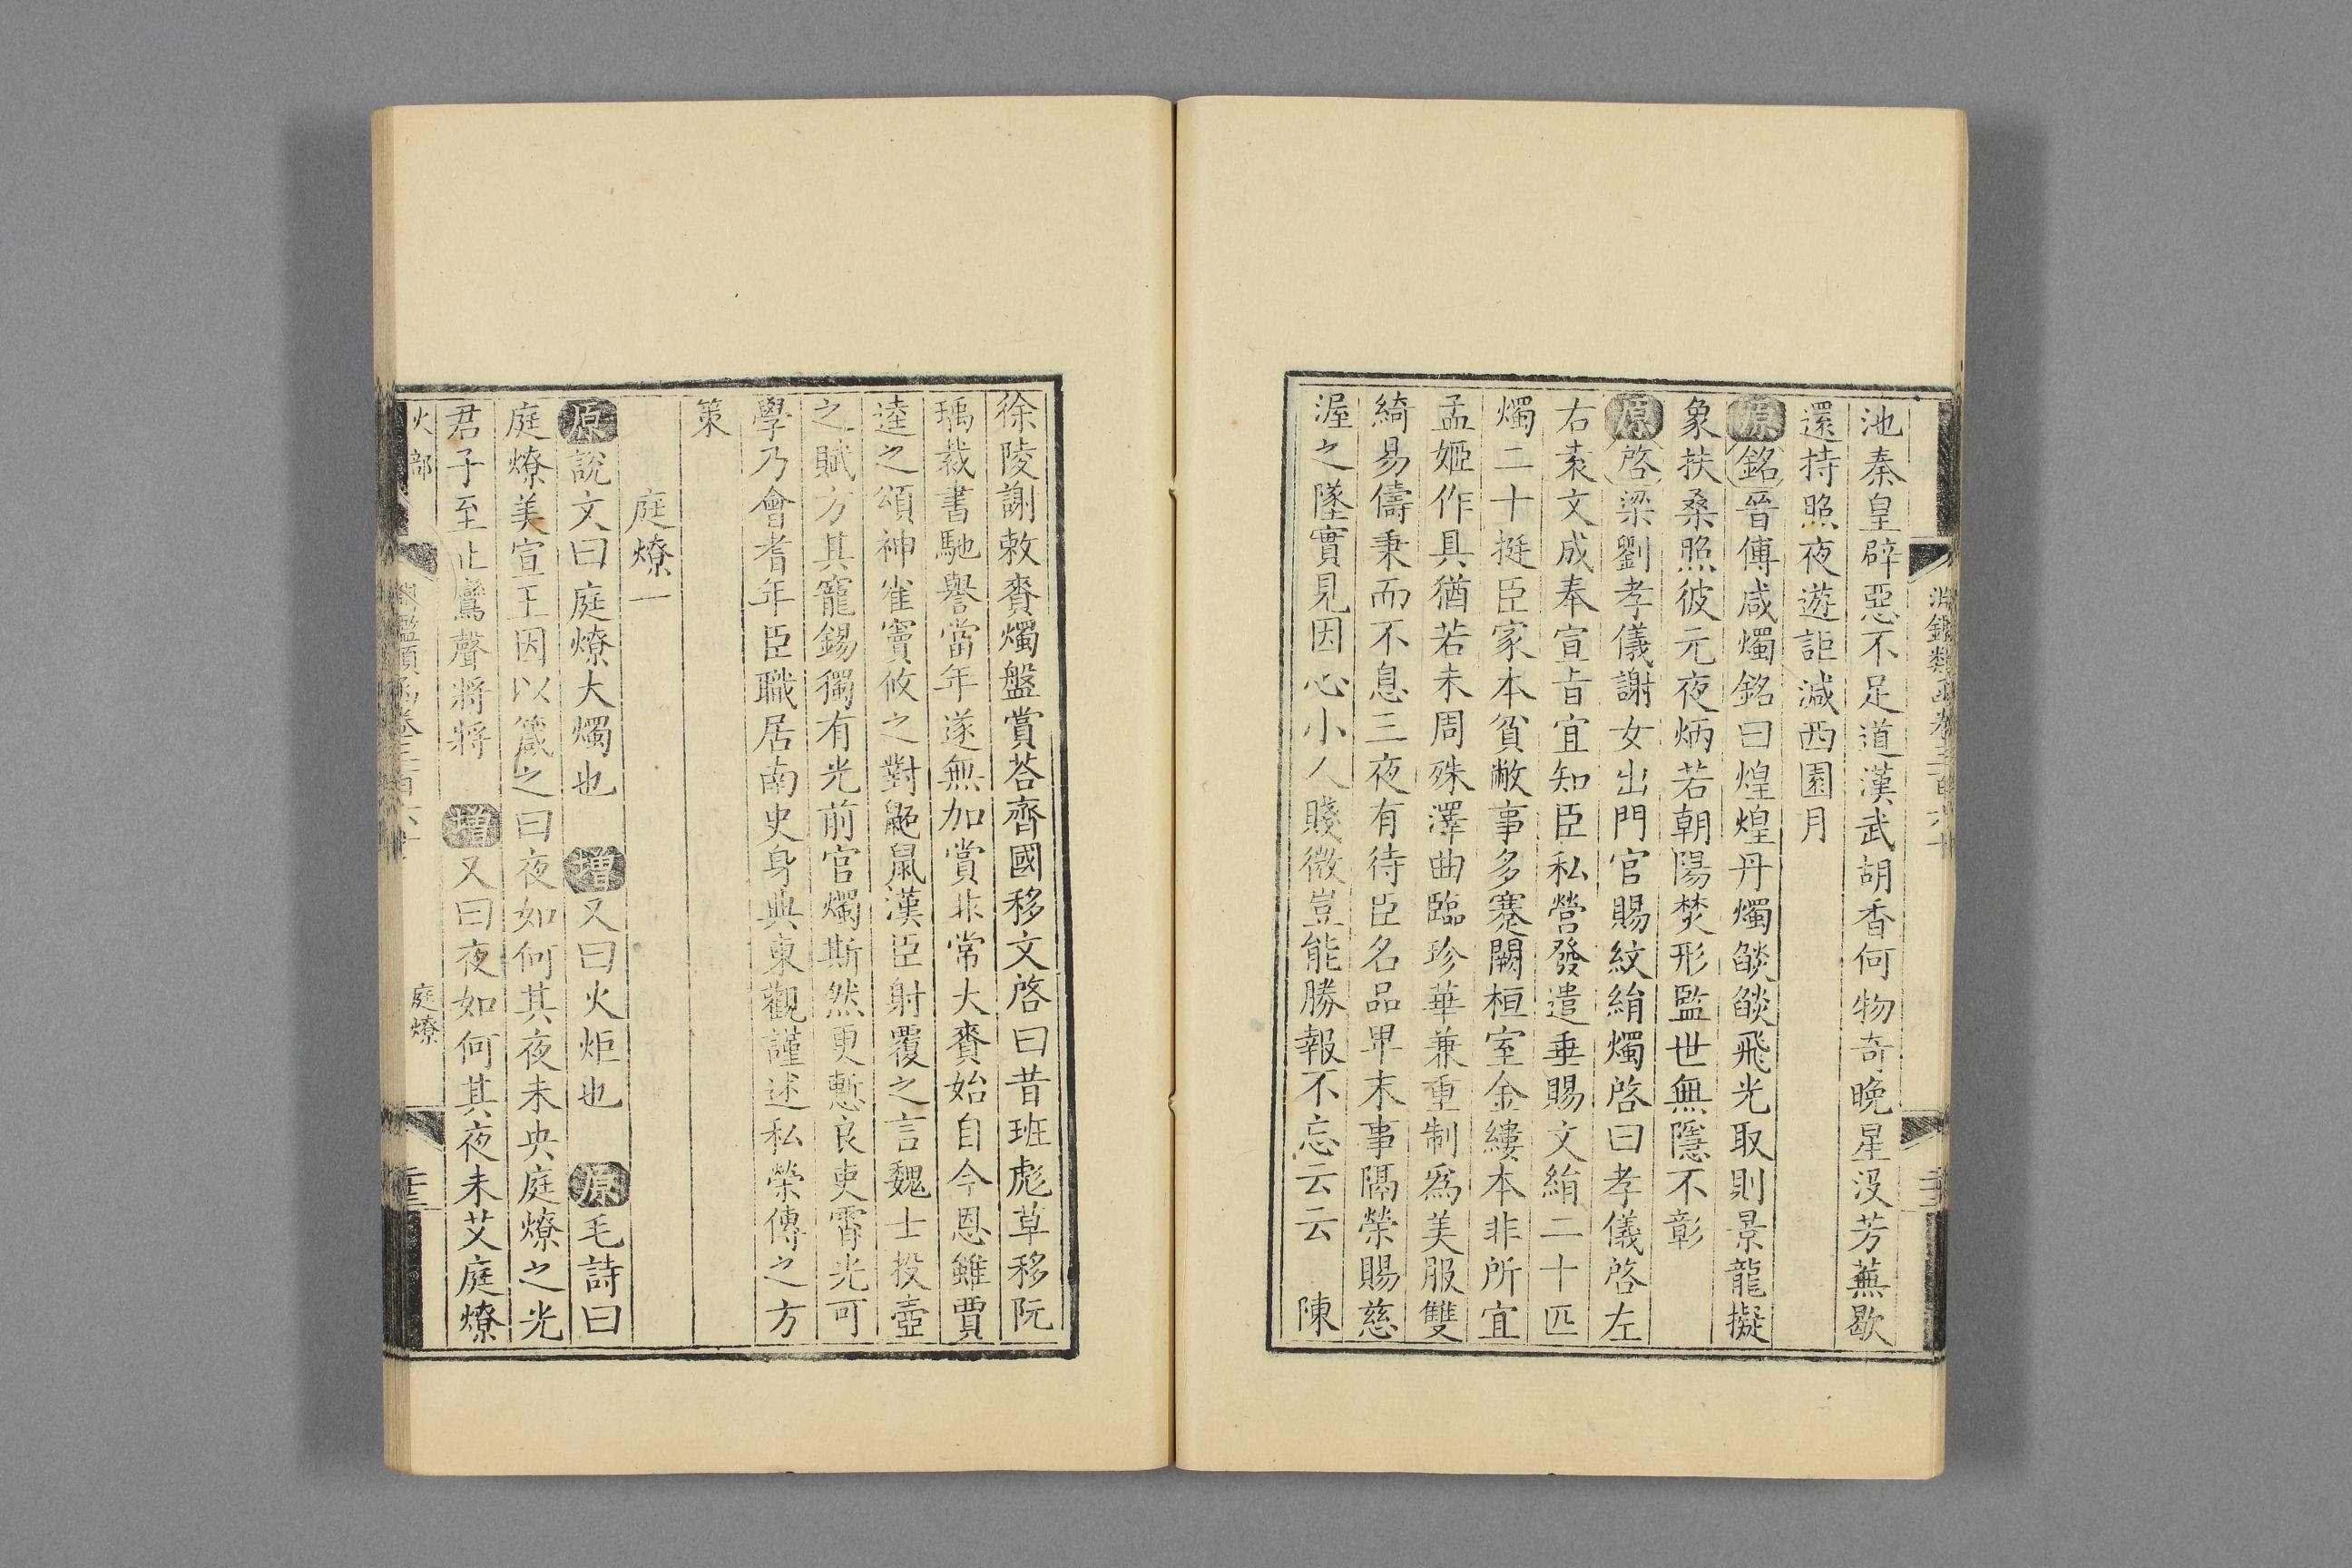 池秦皇辟惡不足道漢武胡香何物奇晚星没芳蕪歇
還持照夜遊詎減西園月
原銘晉傅咸燭銘曰煌煌丹燭燄燄飛光取則景龍擬
象扶桑照彼元夜炳若朝陽焚形監世無隱不彰
原啓梁劉孝儀謝女出門官賜紋絹燭啓曰孝儀啓左
右袁文成奉宣旨宜知臣私營發遣垂賜文絹二十匹
燭二十挺臣家本貧敝事多蹇闕桓室金縷本非所宜
孟姬作具猶若未周殊澤曲臨珍華兼重制爲美服雙
綺易儔秉而不息三夜有待臣名品卑末事隔榮賜慈
渥之墜實見因心小人賤微豈能勝報不忘云云 陳
淵鑑類函卷三百六十
徐陵謝敕賚燭盤賞荅齊國移文啓曰昔班彪草移阮
瑀裁書馳譽當年遂無加賞非常大賚始自今恩雖賈
逵之頌神雀竇攸之對鼮鼠漢臣射覆之言魏士投壺
之賦方其寵錫獨有光前官燭斯然更慙良吏霄光可
學乃會耆年臣職居南史身典東觀謹述私榮傳之方
策
庭燎一
原說文曰庭燎大燭也 增又曰火炬也 原毛詩曰
庭燎美宣王因以箴之曰夜如何其夜未央庭燎之光
君子至止鸞聲將將 增又曰夜如何其夜未艾庭燎
火部
庭燎